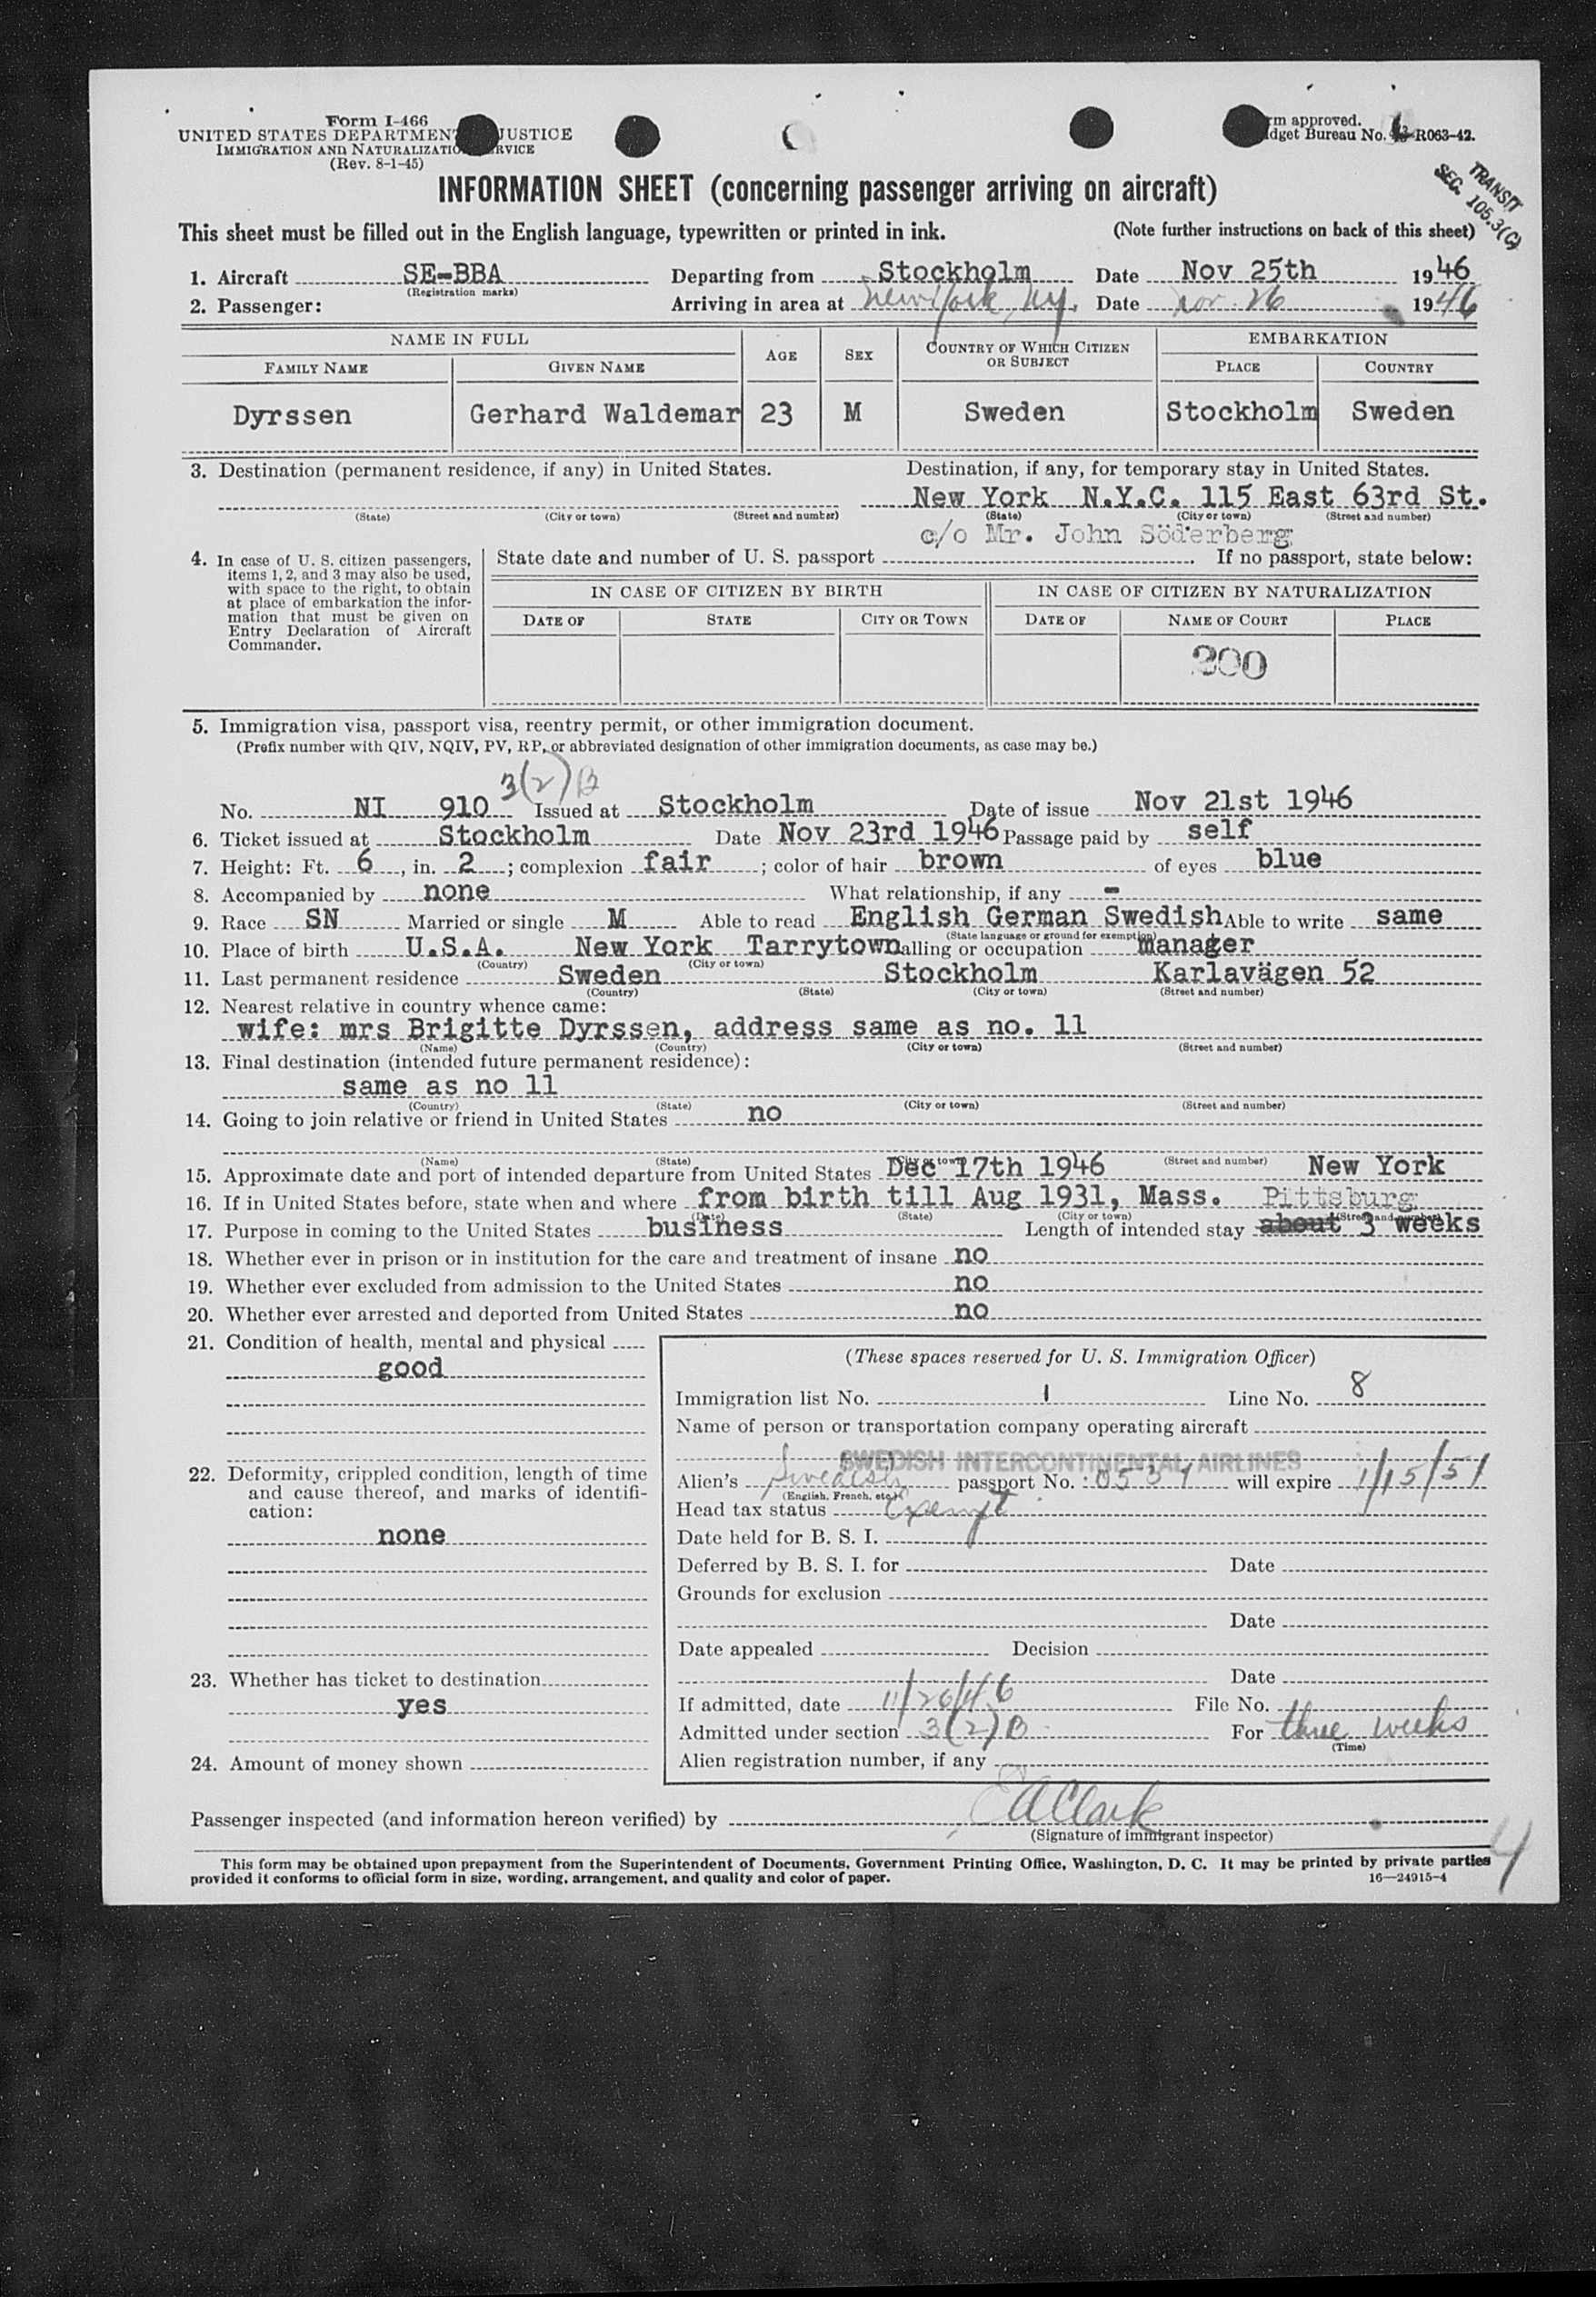 Form I-466
UNITED STATES DEPARTMENT JUSTICE
IMMIGRATION AND NATURALIZATIO RVICE
(Rev. 8-1-45)
rm approved.
dget Bureau No. R063-42.
TRANSIT
SEC. 105.3(C)
INFORMATION SHEET (concerning passenger arriving on aircraft)
This sheet must be filled out in the English language, typewritten or printed in ink. (Note further instructions on back of this sheet)
1. Aircraft SE-BBA Departing from Stockholm Date Nov 25th 1946
(Registration marks)
2. Passenger: Arriving in area at New York, Ny. Date Nov. 26 1946
NAME IN FULL AGE SEX COUNTRY OF WHICH CITIZEN OR SUBJECT EMBARKATION
FAMILY NAME GIVEN NAME PLACE COUNTRY
Dyrssen Gerhard Waldemar 23 M Sweden Stockholm Sweden
3. Destination (permanent residence, if any) in United States. Destination, if any, for temporary stay in United States.
New York N.Y.C. 115 East 63rd St.
(State) (City or town) (Street and number) (State) (City or town) (Street and number)
c/o Mr. John Söderberg
4. In case of U. S. citizen passengers, items 1, 2, and 3 may also be used, with space to the right, to obtain at place of embarkation the information that must be given on Entry Declaration of Aircraft Commander.
State date and number of U. S. passport . If no passport, state below:
IN CASE OF CITIZEN BY BIRTH IN CASE OF CITIZEN BY NATURALIZATION
DATE OF STATE CITY OR TOWN DATE OF NAME OF COURT PLACE
200
5. Immigration visa, passport visa, reentry permit, or other immigration document.
(Prefix number with QIV, NQIV, PV, RP, or abbreviated designation of other immigration documents, as case may be.)
3(2)B
No. NI 910 Issued at Stockholm Date of issue Nov 21st 1946
6. Ticket issued at Stockholm Date Nov 23rd 1946 Passage paid by self
7. Height: Ft. 6, in. 2; complexion fair; color of hair brown of eyes blue
8. Accompanied by none What relationship, if any -
9. Race SN Married or single M Able to read English German Swedish Able to write same
(State language or ground for exemption)
10. Place of birth U.S.A. New York Tarrytown alling or occupation manager
(Country) (City or town)
11. Last permanent residence Sweden Stockholm Karlavägen 52
(Country) (State) (City or town) (Street and number)
12. Nearest relative in country whence came:
wife: mrs Brigitte Dyrssen, address same as no. 11
(Name) (Country) (City or town) (Street and number)
13. Final destination (intended future permanent residence):
same as no 11
(Country) (State) (City or town) (Street and number)
14. Going to join relative or friend in United States no
(Name) (State) (City or town) (Street and number)
15. Approximate date and port of intended departure from United States Dec 17th 1946 New York
16. If in United States before, state when and where from birth till Aug 1931, Mass. Pittsburg
(Date) (State) (City or town) (Street and number)
17. Purpose in coming to the United States business Length of intended stay about 3 weeks
18. Whether ever in prison or in institution for the care and treatment of insane no
19. Whether ever excluded from admission to the United States no
20. Whether ever arrested and deported from United States no
21. Condition of health, mental and physical
good
22. Deformity, crippled condition, length of time and cause thereof, and marks of identification:
none
23. Whether has ticket to destination
yes
24. Amount of money shown
(These spaces reserved for U. S. Immigration Officer)
Immigration list No. 1 Line No. 8
Name of person or transportation company operating aircraft
SWEDISH INTERCONTINENTAL AIRLINES
Alien's Swedish passport No. will expire 1/15/51
(English, French, etc.)
Head tax status Exempt
Date held for B. S. I.
Deferred by B. S. I. for Date
Grounds for exclusion
Date
Date appealed Decision
Date
If admitted, date 11/26/46 File No.
Admitted under section 3(2)B For three weeks
(Time)
Alien registration number, if any
Passenger inspected (and information hereon verified) by EAClark
(Signature of immigrant inspector)
This form may be obtained upon prepayment from the Superintendent of Documents, Government Printing Office, Washington, D. C. It may be printed by private parties
provided it conforms to official form in size, wording, arrangement, and quality and color of paper. 16—24915-4
4